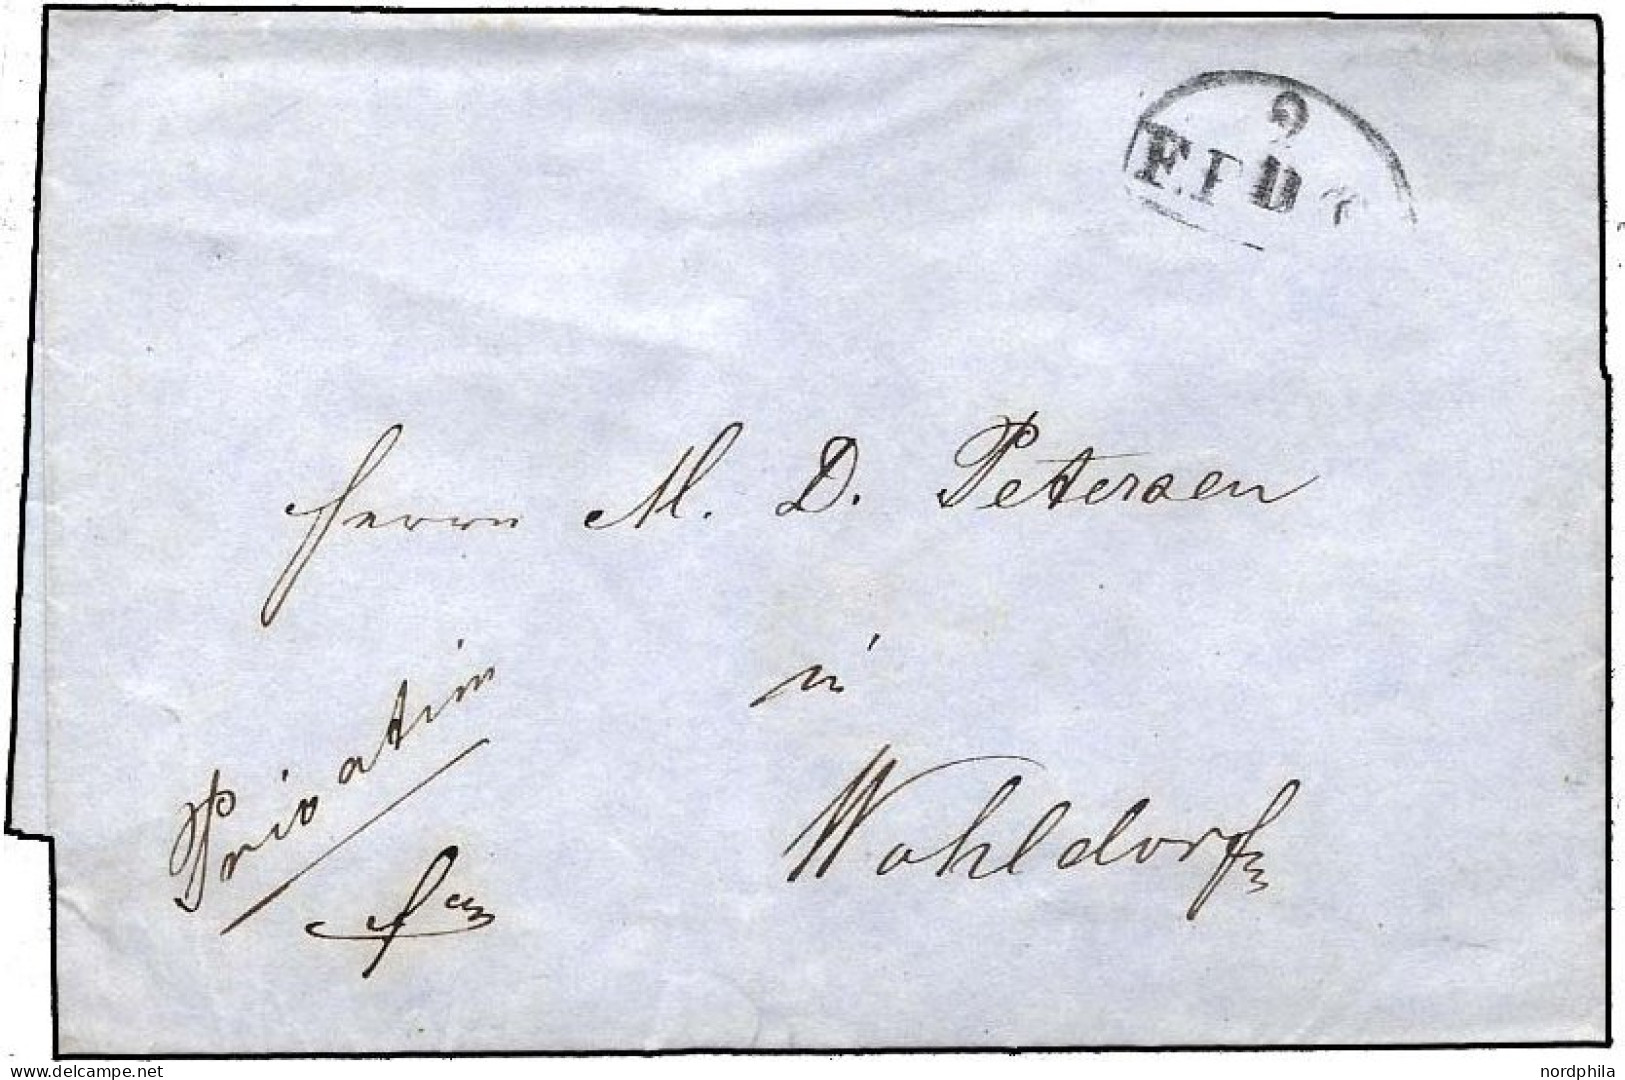 9
F.P.D
Herrn M. D. Petersen
in
Wohldorf
Privatim
posthistory.delcampe.net
nordphila